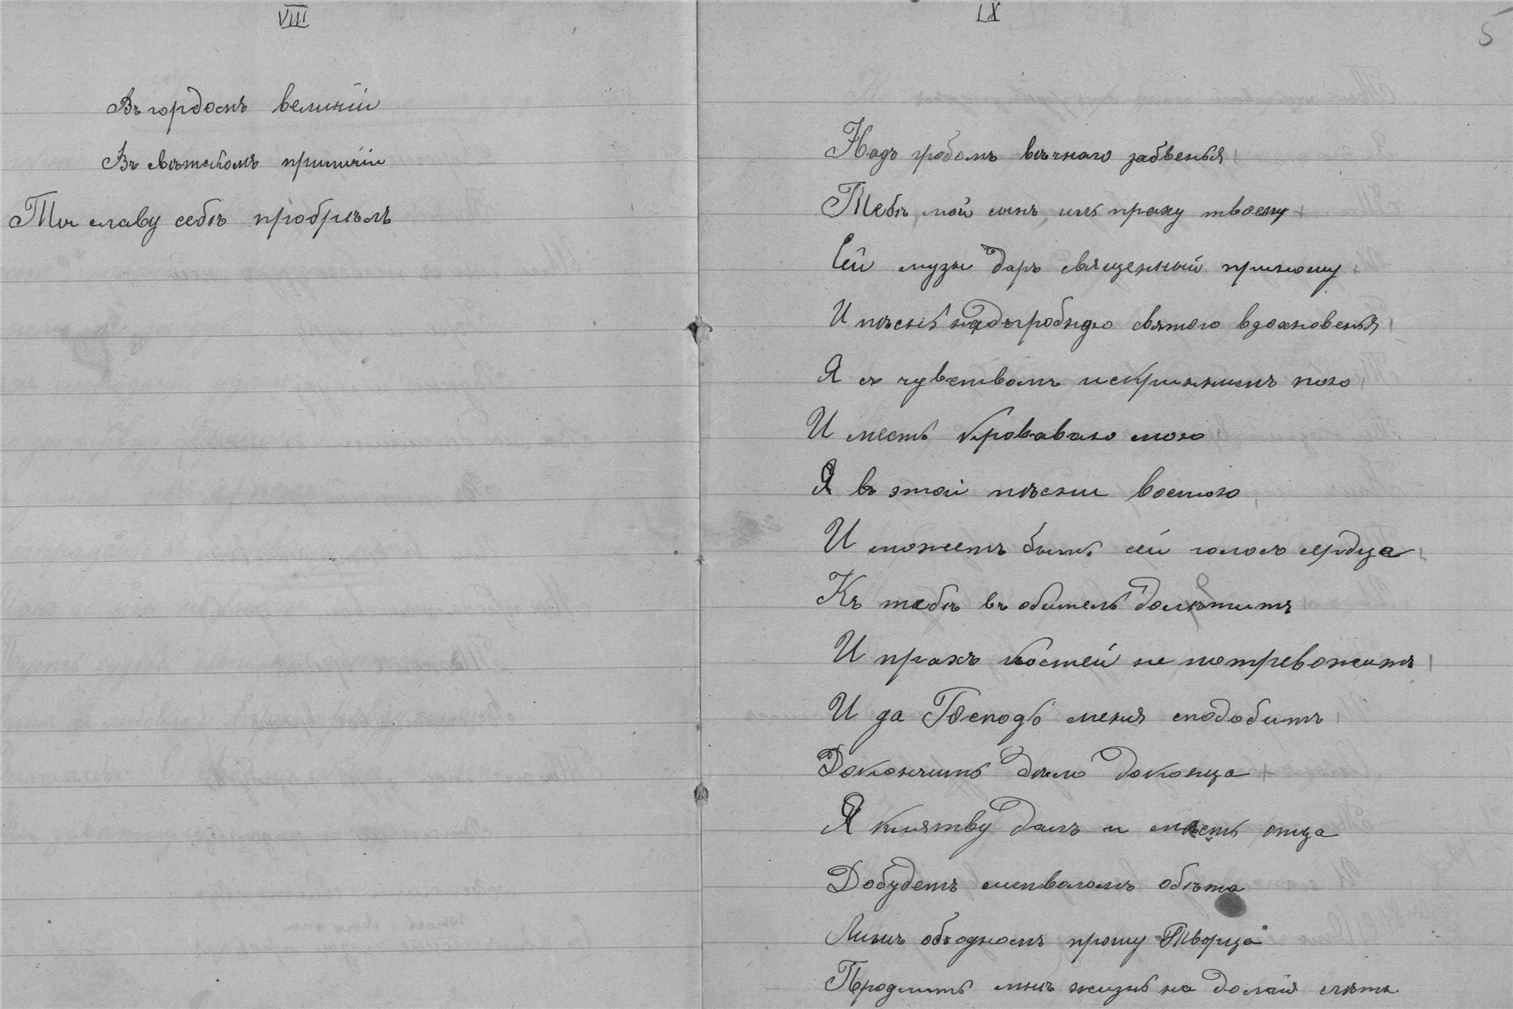 VIII
Въ гордомъ величіи
Въ свѣтскомъ приличіи
Ты славу себѣ пробрѣлъ
IX
5
Надъ гробомъ вѣчнаго забвенья,
Тебѣ, мой сынъ, иль праху твоему
Сей музы даръ священный приношу,
И пѣснь надъгробную святого вдохновенья,
Я съ чувствомъ искриннимъ пою,
И месть кроваваю мою
Я въ этой пѣсни воспою,
И можетъ быть сей голосъ сердца,
Къ тебѣ въ обитель долѣтитъ
И прахъ костей не потревожитъ,
И да Господь меня сподобитъ,
Докончить дѣло доконца
Я клятву далъ и месть отца
Добудетъ символомъ обѣта
Лишь объодномъ прошу Творца
Продлить мнѣ жизнь на долгія лѣта